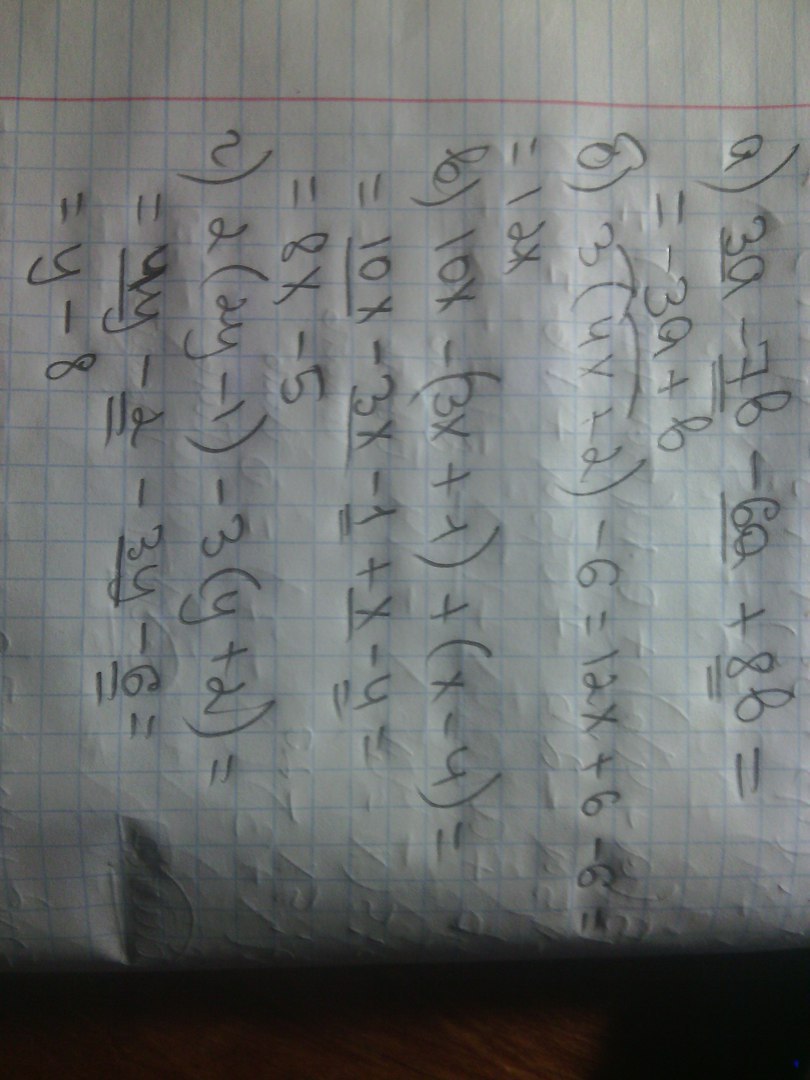 а) 3a - 7b - 6a + 8b =
= -3a + b
б) 3(4x + 2) - 6 = 12x + 6 - 6 =
= 12x
в) 10x - (3x + 1) + (x - 4) =
= 10x - 3x - 1 + x - 4 =
= 8x - 5
г) 2(2y - 1) - 3(y + 2) =
= 4y - 2 - 3y - 6 =
= y - 8